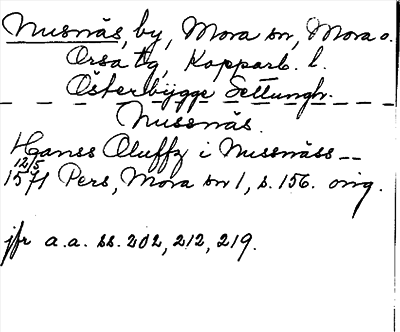 Nusnäs, by, Mora sn, Mora o.
Orsa tg, Kopparb. l.
Österbygge Settungh.
Nussnäs.
Hanss Oluffz i Nussnäss --
12/5
1571 Pers, Mora sn 1, s. 156. orig.
jfr a.a. ss. 202, 212, 219.